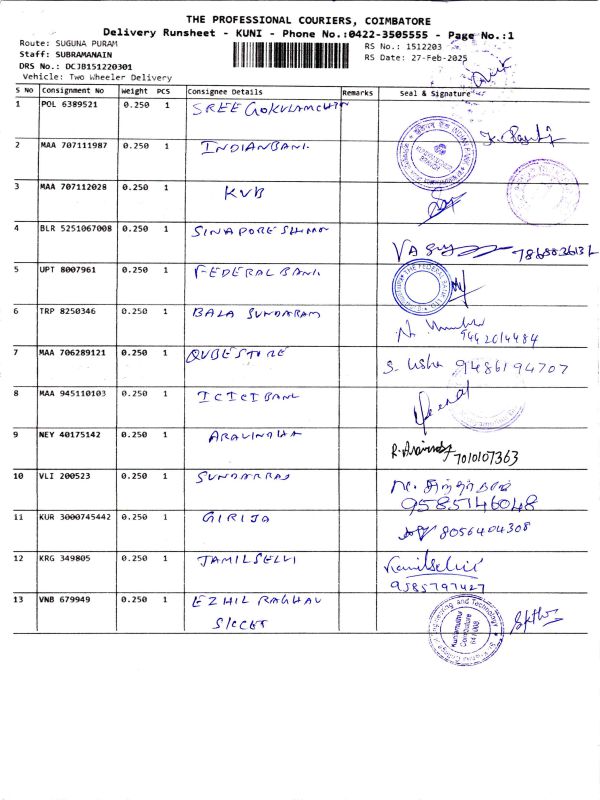 THE PROFESSIONAL COURIERS, COIMBATORE
Delivery Runsheet - KUNI - Phone No.:0422-3505555 - Page No.:1
Route: SUGUNA PURAM
RS No.: 1512203
Staff: SUBRAMANAIN
RS Date: 27-Feb-2025
DRS No.: DCJB151220301
Vehicle: Two Wheeler Delivery
S No Consignment No Weight PCS Consignee Details Remarks Seal & Signature
1 POL 6389521 0.250 1 SREE
2 MAA 707111987 0.250 1 INDIANBANK
3 MAA 707112028 0.250 1 KVB
4 BLR 5251067008 0.250 1
5 UPT 8007961 0.250 1 FEDERAL BANK
THE FEDERAL BANK LTD
6 TRP 8250346 0.250 1 BALA SUNDARAM
9442014484
7 MAA 706289121 0.250 1 QUBESTORE S. Usha 9486194707
8 MAA 945110103 0.250 1 ICICI BANK
9 NEY 40175142 0.250 1 ARAVINDHA
7010107363
10 VLI 200523 0.250 1 SUNDARRAJ
9585146048
11 KUR 3000745442 0.250 1 GIRIJA 8056404308
12 KRG 349805 0.250 1 TAMILSELVI
9585797427
13 VNB 679949 0.250 1 EZHIL RAGHAV
SKCET
Engineering and Technology
Kuniamuthur
Coimbatore
641008